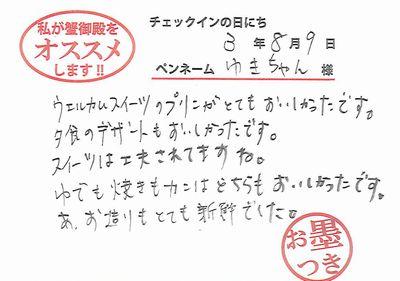 私が蟹御殿を
オススメ
します!!
チェックインの日にち
3年8月9日
ペンネーム ゆきちゃん 様
ウェルカムスイーツのプリンがとてもおいしかったです。
夕食のデザートもおいしかったです。
スイーツは工夫されてますね。
ゆでも焼きもカニはどちらもおいしかったです。
あ、お造りもとても新鮮でした。
お墨
つき